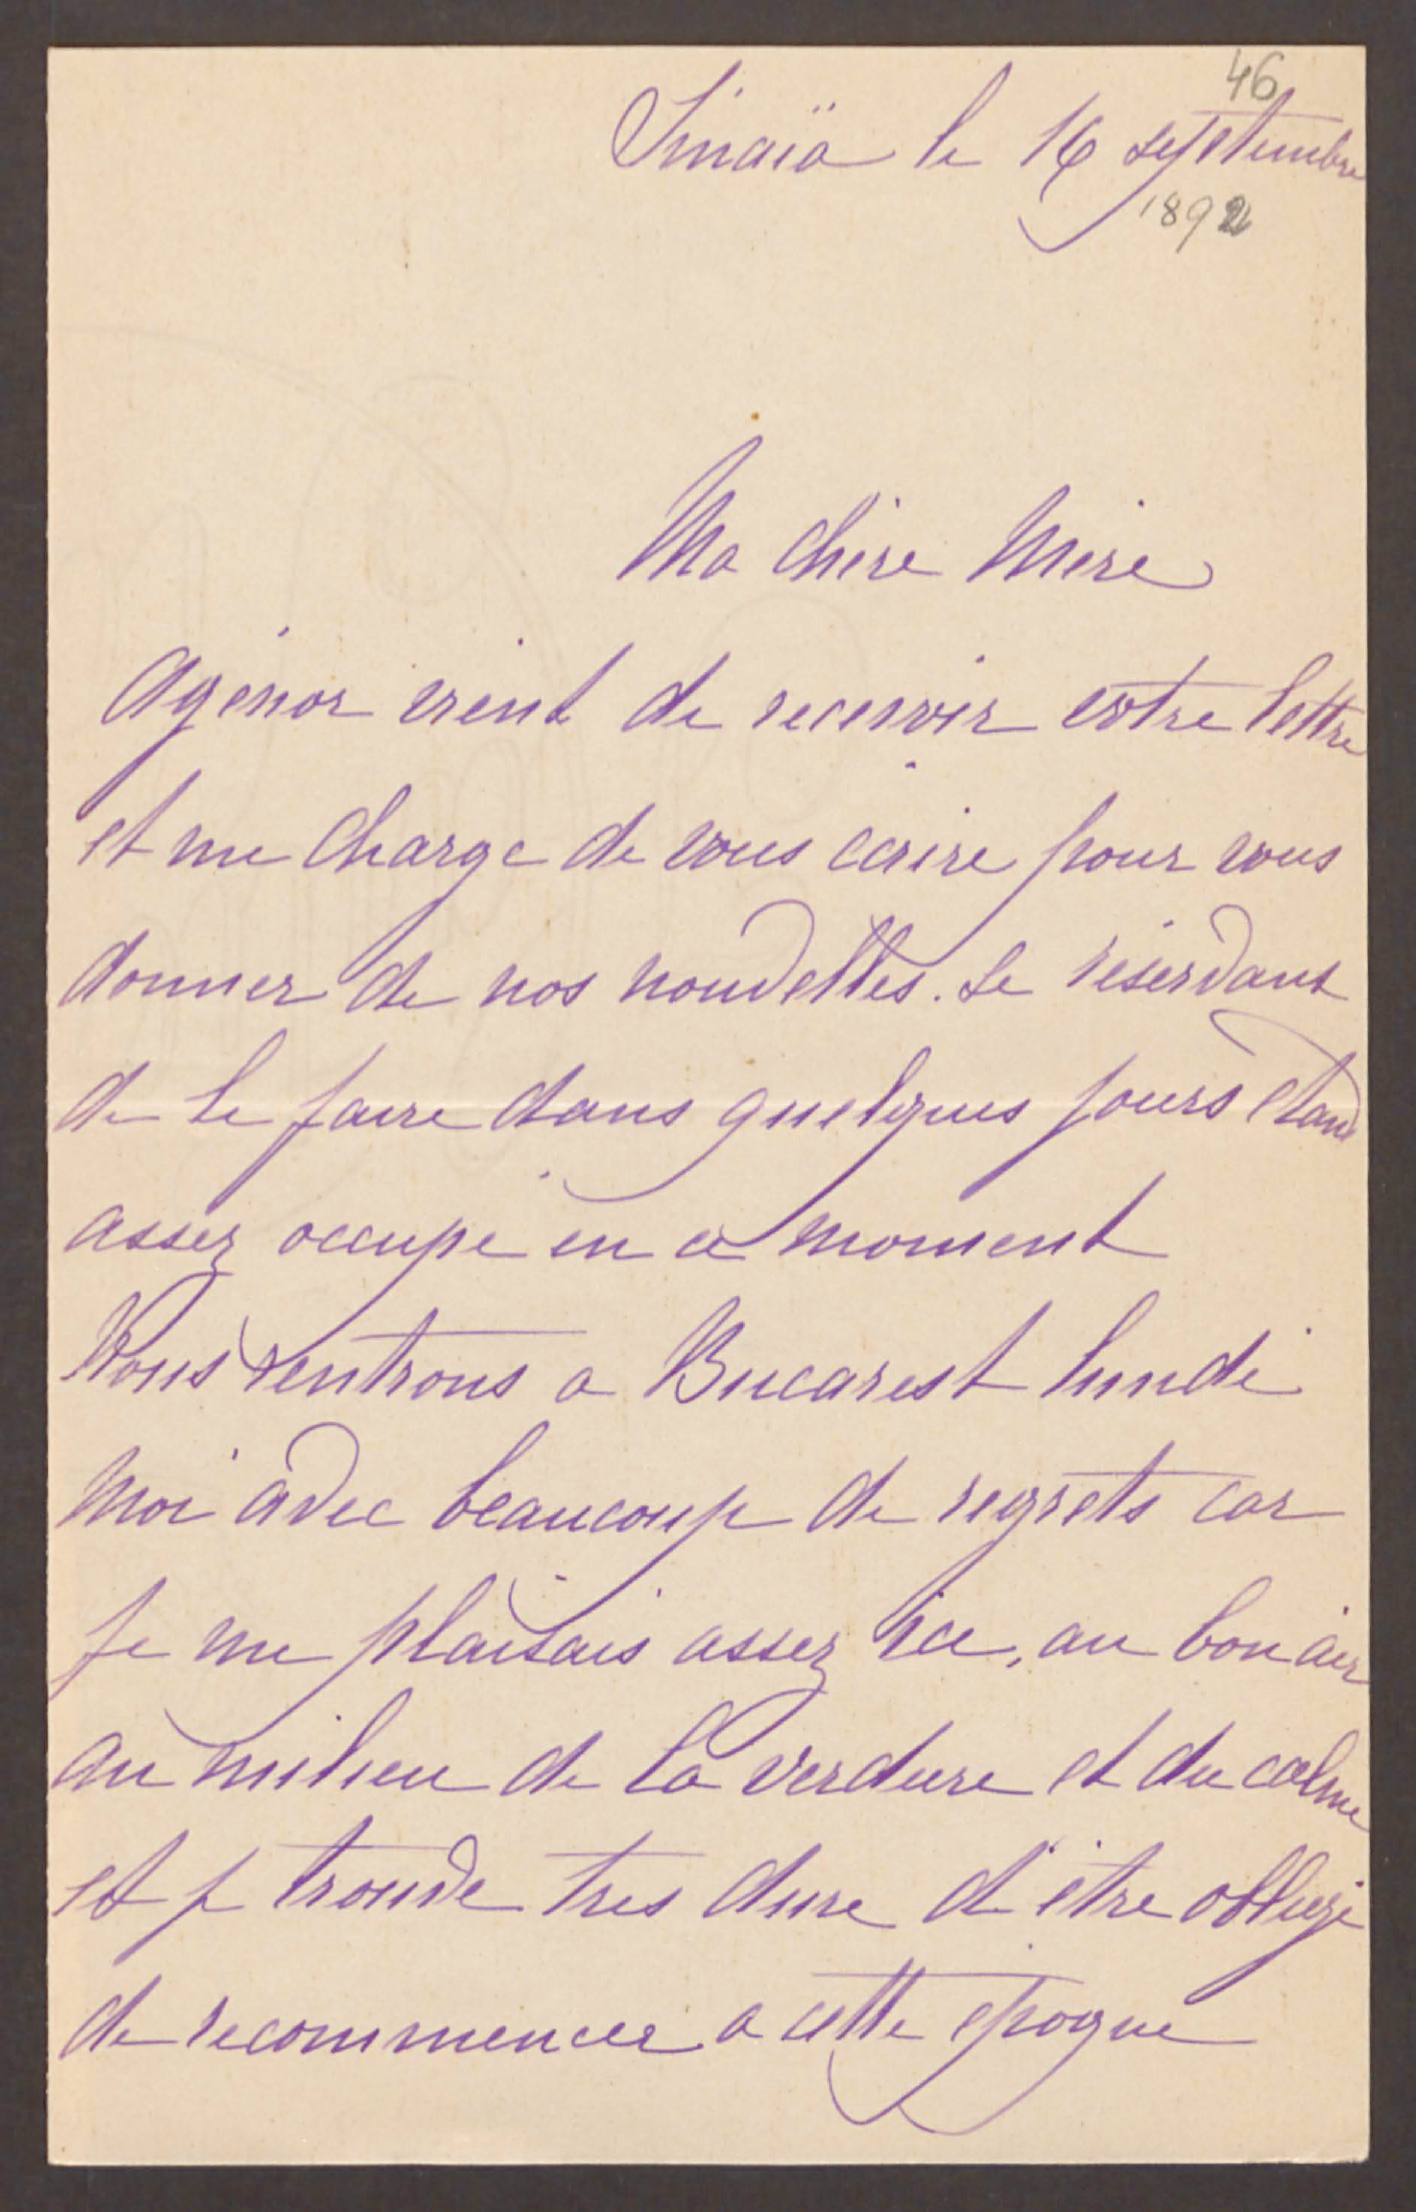 46
Sinaïa le 16 septembre
1892
Ma chère Mère
Agénor vient de recevoir votre lettre
et me charge de vous écrire pour vous
donner de nos nouvelles. Se réservant
de le faire dans quelques jours étant
assez occupé en ce moment
Nous rentrons a Bucarest lundi
moi avec beaucoup de regrets car
je me plaisais assez ici, au bon air
au milieu de la verdure et du calme
et je trouve tres dure d'être obligé
de recommencer a cette époque